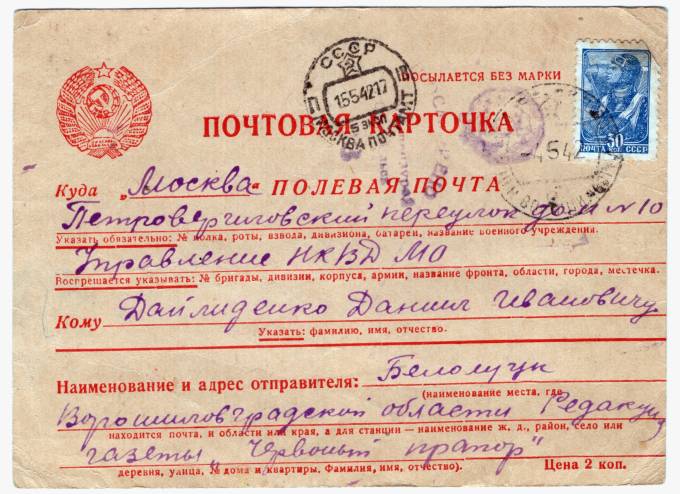 СССР
1554217
МОСКВА ПОЧТАМТ
ПОСЫЛАЕТСЯ БЕЗ МАРКИ
30
ПОЧТА СССР
-4542
ПОЧТОВАЯ КАРТОЧКА
Куда „Москва“ ПОЛЕВАЯ ПОЧТА
Петроверигиловский переулок дом N 10
Указать обязательно: № полка, роты, взвода, дивизиона, батареи, название военного учреждения.
Управление НКВД МО
Воспрещается указывать: № бригады, дивизии, корпуса, армии, название фронта, области, города, местечка.
Кому Дайлиденко Даниил Ивановичу
Указать: фамилию, имя, отчество.
Наименование и адрес отправителя: Белолуцк
(наименование места, где
Ворошиловградской области Редакция
находится почта, и области или края, а для станции — наименование ж. д., район, село или
газеты „Червоный прапор“
деревня, улица, № дома и квартиры. Фамилия, имя, отчество).
Цена 2 коп.